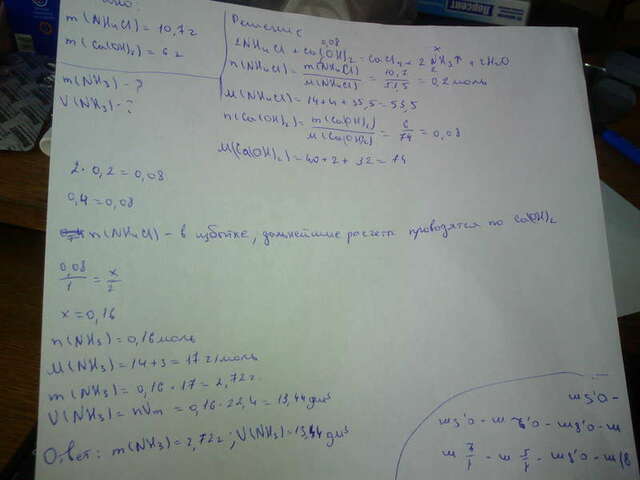 ано:
m(NH₄Cl) = 10,7 г
m(Ca(OH)₂) = 6 г
m(NH₃) - ?
V(NH₃) - ?
Решение
0,08 x
2NH₄Cl + Ca(OH)₂ = CaCl₂ + 2NH₃↑ + 2H₂O
2
n(NH₄Cl) = m(NH₄Cl)/M(NH₄Cl) = 10,7/53,5 = 0,2 моль
M(NH₄Cl) = 14 + 4 + 35,5 = 53,5
n(Ca(OH)₂) = m(Ca(OH)₂)/M(Ca(OH)₂) = 6/74 = 0,08
M(Ca(OH)₂) = 40 + 2 + 32 = 74
2 · 0,2 = 0,08
0,4 = 0,08
n(NH₄Cl) - в избытке, дальнейшие расчета проводятся по Ca(OH)₂
0,08/1 = x/2
x = 0,16
n(NH₃) = 0,16 моль
M(NH₃) = 14 + 3 = 17 г/моль
m(NH₃) = 0,16 · 17 = 2,72 г.
V(NH₃) = nVm = 0,16 · 22,4 = 13,44 дм³
Ответ: m(NH₃) = 2,72 г; V(NH₃) = 13,44 дм³